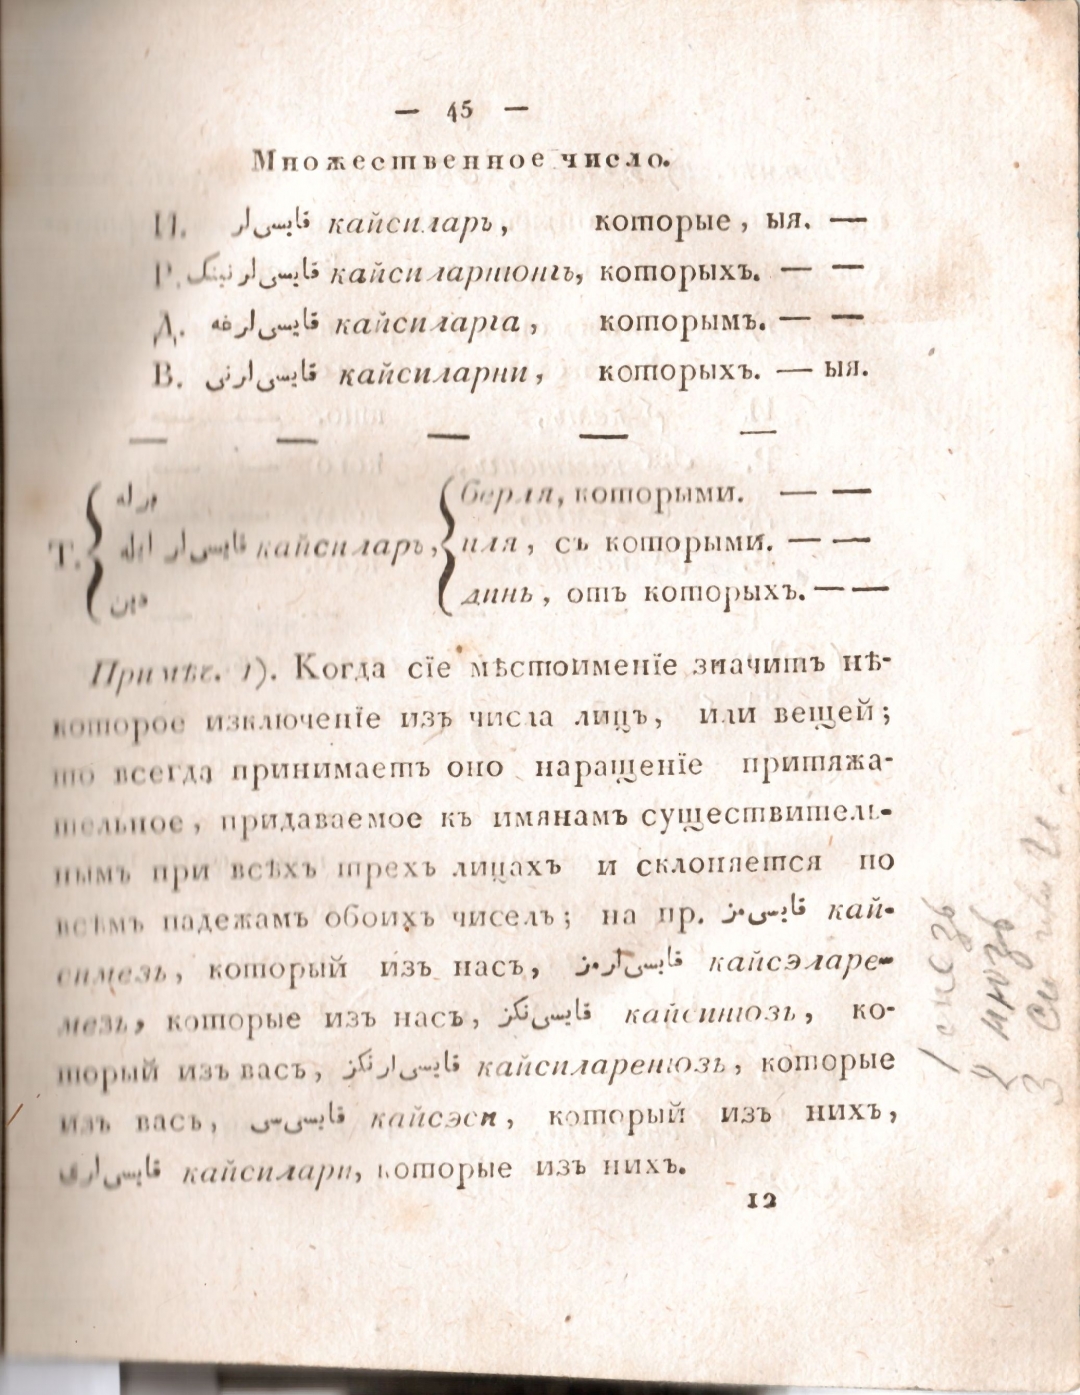 — 45 —
Множественное число.
И. قايسى‌لر кайсиларъ, которые, ыя. —
Р. قايسى‌لرنينک кайсиларнюнгъ, которыхъ. — —
Д. قايسى‌لرغه кайсиларга, которымъ. — —
В. قايسى‌لرنى кайсиларни, которыхъ. — ыя.
— — — — —
برله берля, которыми. — —
Т. قايسى‌لر ايله кайсиларъ, иля, съ которыми. — —
دين динь, отъ которыхъ. — —
Примѣч. 1). Когда сїе мѣстоименїе значитъ нѣ-
которое изключенїе изъ числа лицъ, или вещей;
то всегда принимаетъ оно наращенїе притяжа-
тельное, придаваемое къ имянамъ существитель-
нымъ при всѣхъ трехъ лицахъ и склоняется по
всѣмъ падежамъ обоихъ чиселъ; на пр. قايسى‌مز кай-
симезъ, который изъ насъ, قايسى‌لرمز кайсэларе-
мезъ, которые изъ насъ, قايسى‌نکز кайсинюзъ, ко-
торый изъ васъ, قايسى‌لرنکز кайсиларенюзъ, которые
изъ васъ, قايسى‌سى кайсэси, который изъ нихъ,
قايسى‌لرى кайсилари, которые изъ нихъ.
12